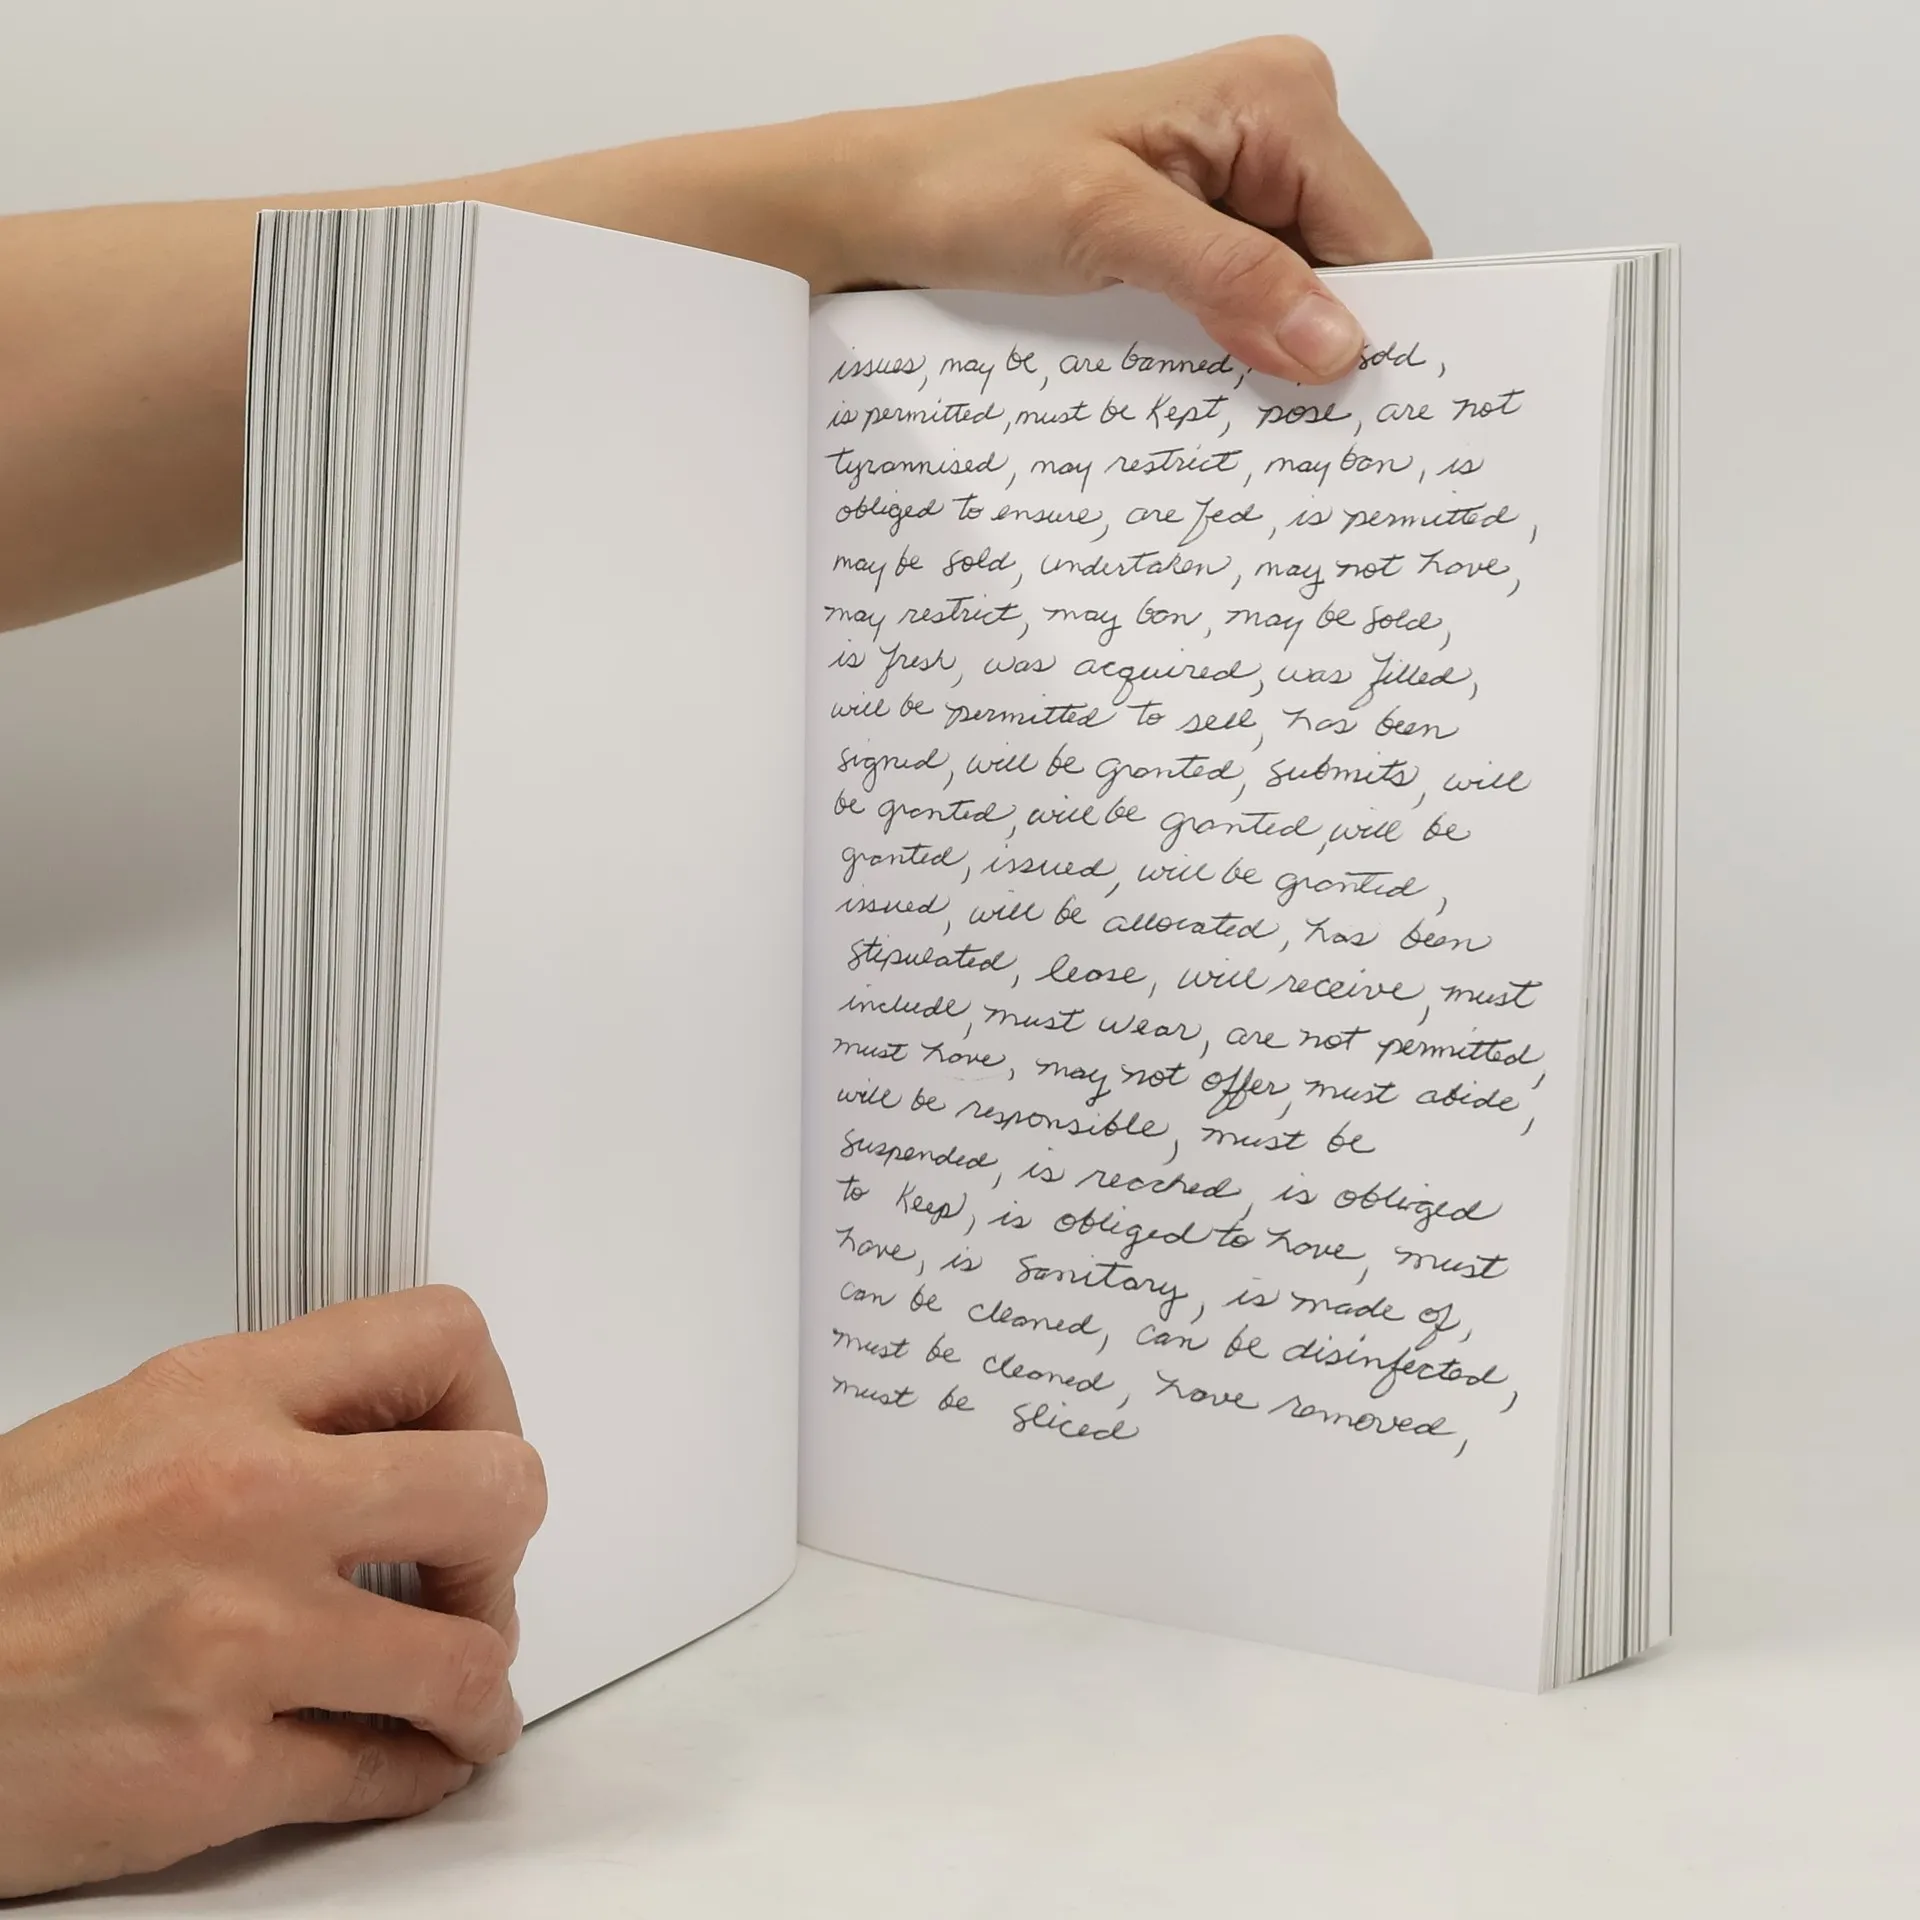 issues, may be, are banned, sold,
is permitted, must be kept, pose, are not
tyrannised, may restrict, may ban, is
obliged to ensure, are fed, is permitted,
may be sold, undertaken, may not have,
may restrict, may ban, may be sold,
is fresh, was acquired, was filled,
will be permitted to sell, has been
signed, will be granted, submits, will
be granted, will be granted, will be
granted, issued, will be granted,
issued, will be allocated, has been
stipulated, lease, will receive, must
include, must wear, are not permitted,
must have, may not offer, must abide,
will be responsible, must be
suspended, is reached, is obliged
to keep, is obliged to have, must
have, is sanitary, is made of,
can be cleaned, can be disinfected,
must be cleaned, have removed,
must be sliced